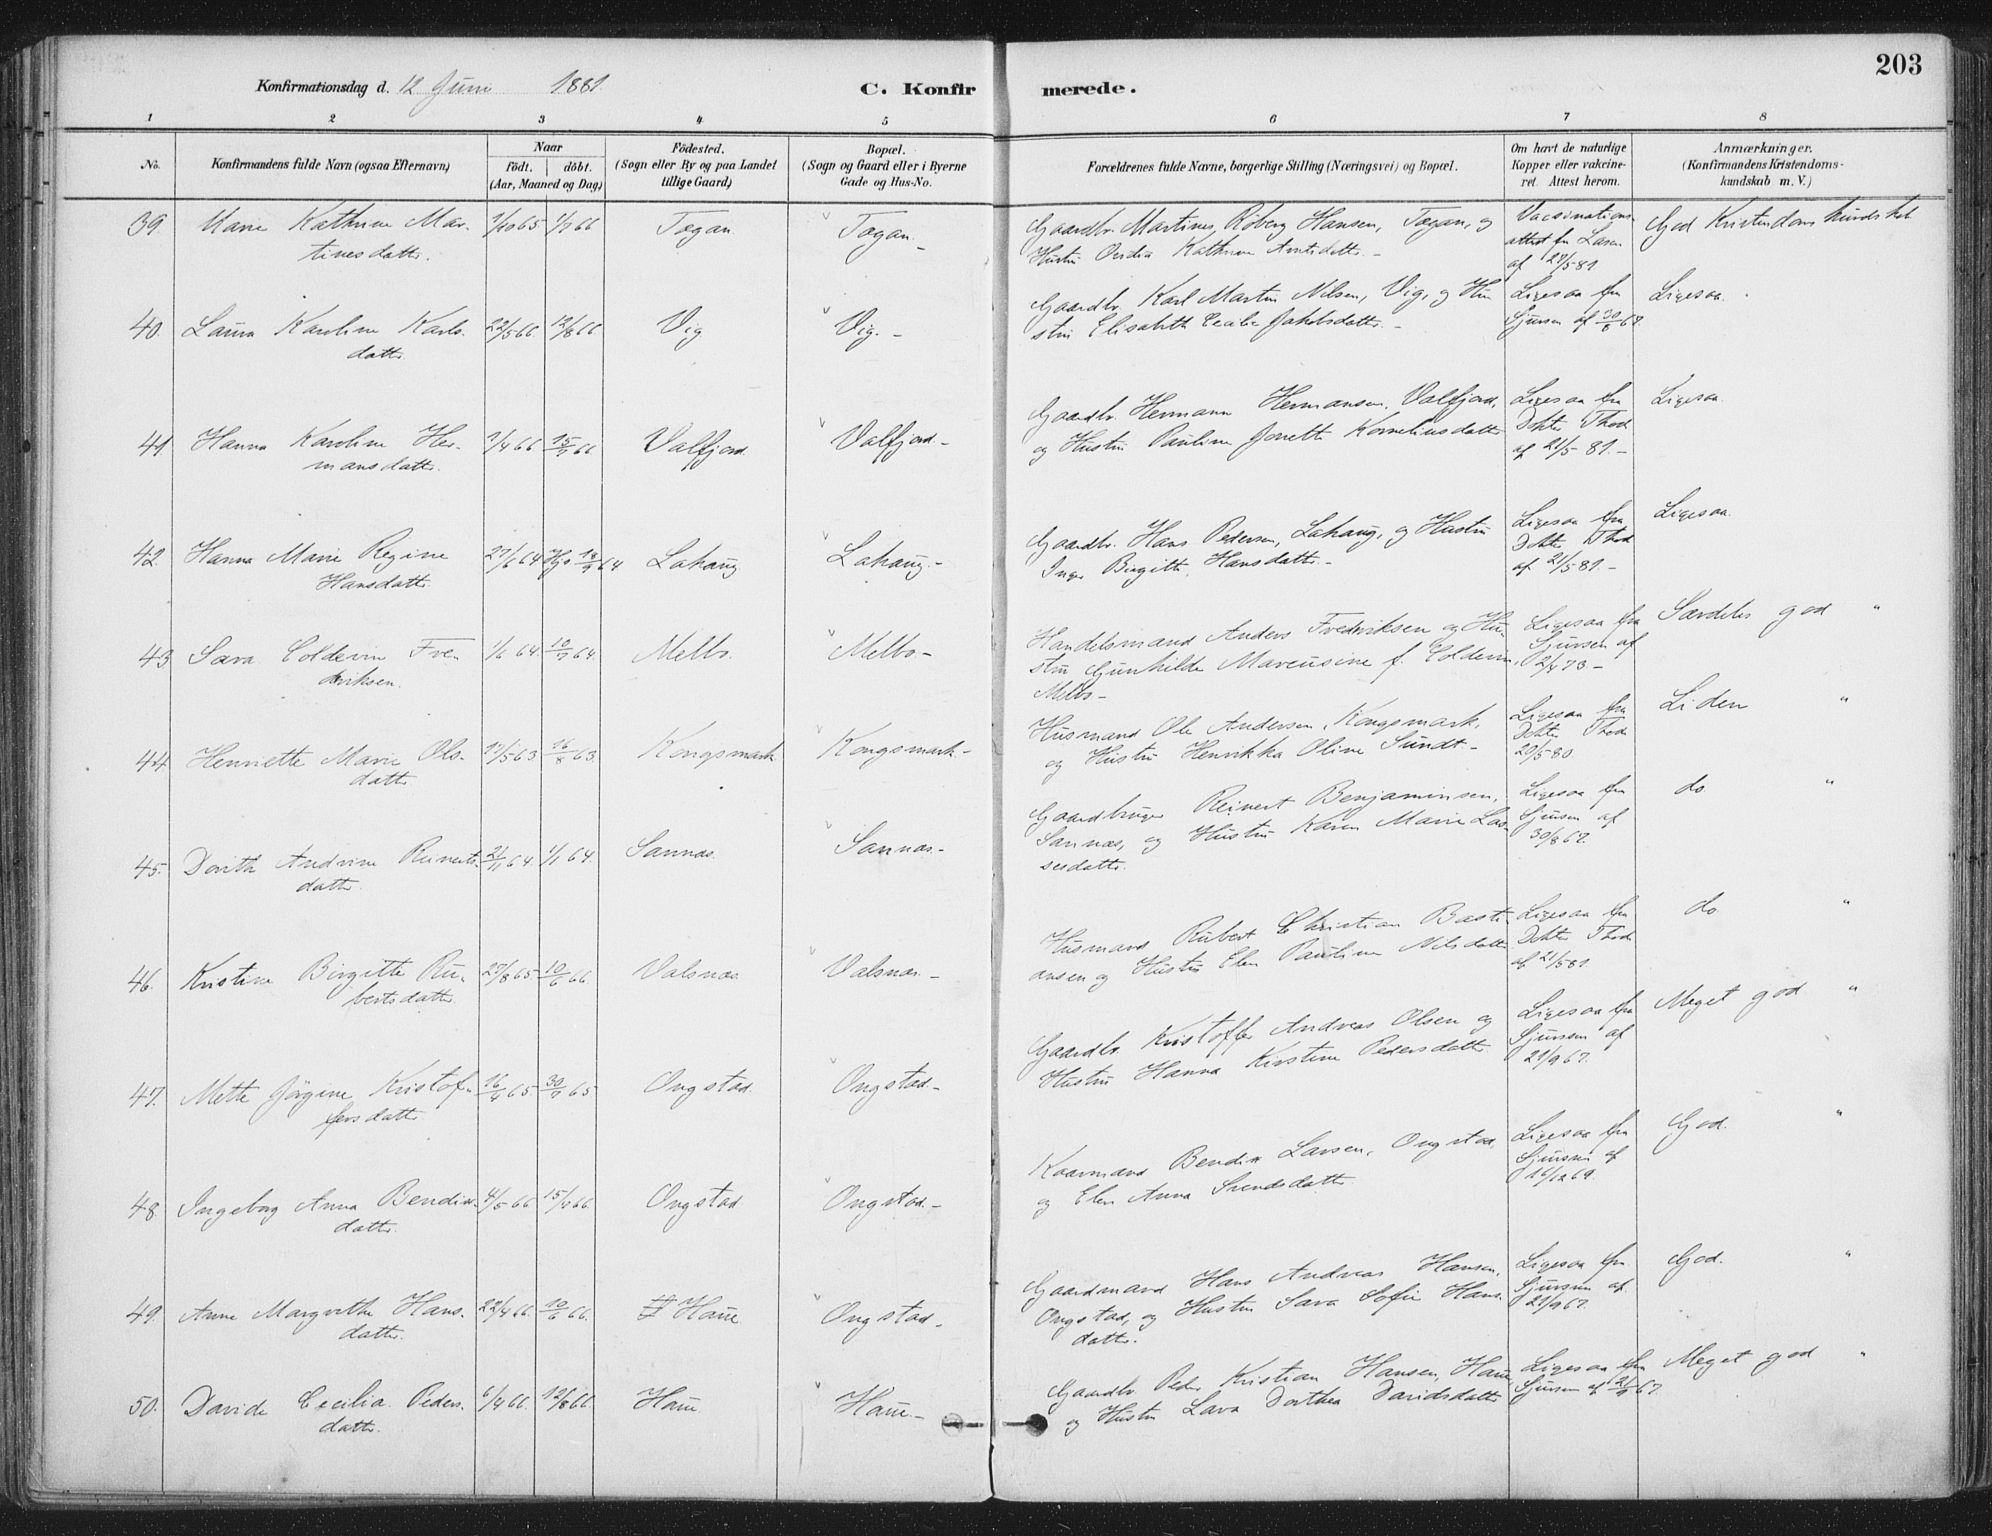 203
Konfirmationsdag d. 12 Juni 1881.
C. Konfirmerede.
1 2 3 4 5 6 7 8
No.
Konfirmandens fulde Navn (ogsaa Efternavn)
Naar
födt. döbt.
(Aar, Maaned og Dag)
Födested.
(Sogn eller By og paa Landet
tillige Gaard)
Bopæl.
(Sogn og Gaard eller i Byerne
Gade og Hus-No.
Forældrenes fulde Navne, borgerlige Stilling (Næringsvei) og Bopæl.
Om havt de naturlige
Kopper eller vakcine-
ret. Attest herom.
Anmærkninger.
(Konfirmandens Kristendoms-
kundskab m. V.)
39. Marie Kathrine Mar- 1/10 65 1/7 66 Tøgan Tøgan.-
tinesdatter.
Gaardbr. Martines Røberg Hansen, Tøgan, og
Hustru Ovidia Kathrine Arntsdatter.-
Vacsinations
attest fra Lasen
af 27/5 81
God Kristendomskundskab
40. Laura Karoline Karls- 22/5 66 12/8 66 Vig Vig.-
datter
Gaardbr. Karl Martin Nilsen, Vig, og Hu
stru Elisabeth Cecilie Jakobsdatter.-
Ligesaa fra
Sjursen af 30/8 67.
Ligesaa.
41 Hanna Karoline Her- 1/4 66 15/7 66 Valfjord Valfjord.-
mansdatter.
Gaardbr. Hermann Hermansen, Valfjord,
og Hustru Pauline Jonette Kornelinsdatter
Ligesaa fra
Dokter Thode
af 21/5 81.-
Ligesaa.
42. Hanna Marie Regine 27/6 64 Hjo 18/9 64 Lahaug Lahaug.-
Hansdatter
Gaardbr. Hans Pedersen, Lahaug, og Hustru
Inger Birgitte Hansdatter.-
Ligesaa fra
Dokter Thode
af 21/5 81.-
Ligesaa.
43 Sara Coldevin Fre 1/6 64. 10/7 64. Melbo Melbo-
driksen.
Handelsmand Anders Fredriksen og Hu-
stru Gunhilde Marcusine f. Coldevin,
Melbo-
Ligesaa fra
Sjursen af
2/4 73-
Særdeles god "
44 Henriette Marie Ols- 17/5 63 16/8 63. Kongsmark Kongsmark.-
datter
Husmand Ole Andersen, Kongsmark,
og Hustru Henrikka Oline Sundt-
Ligesaa fra
Dokter Thode
20/5 80.
Liden "
45. Dorith Andrine Reinerts- 21/11 64. 1/1 64. Sannæs. Sannæs.-
datter
Gaardbruger Reinert Benjaminsen,
Sannæs, og Hustru Karen Marie Las-
sesdatter.
Ligesaa fra
Sjursen af
30/8 67.
do "
46. Kristine Birgitte Ru- 27/8 65- 10/6 66. Valsnæs Valsnæs.-
bertsdatter
Husmand Rubert Christian Basti-
ansen og Hustru Elen Pauline Nilsdatter
Ligesaa fra
Dokter Thode
af 21/5 81.
do "
47. Mette Jörgine Kristof- 16/4 65- 30/7 65 Ongstad. Ongstad-
fersdatter
Gaardbr. Kristoffer Andreas Olsen og
Hustru Hanna Kirstine Pedersdatter
Ligesaa fra
Sjursen af
21/9 67.
Meget god "
48 Ingeborg Anna Bendix- 4/5 66 15/7 66. Ongstad Ongstad.-
datter.
Kaarmand Bendix Larsen, Ongstad,
og Elen Anna Svendsdatter
Ligesaa fra
Sjursen af
16/12 69.
God. "
49. Anne Margrethe Hans- 22/4 66. 10/6 66. Haue Ongstad.
datter.
Gaardmand Hans Andreas Hansen,
Ongstad, og Hustru Sara Sofie Hans-
datter.
Ligesaa fra
Sjursen af
21/9 67.
God. "
50. Davide Cecilia Peders- 6/4 66. 12/8 66. Haue Haue.-
datter.
Gaardbr. Peder Kristian Hansen, Haue
og Hustru Lava Dorthea Davidsdatter
Ligesaa fra
Sjursen af 21/9 67.
Meget god "